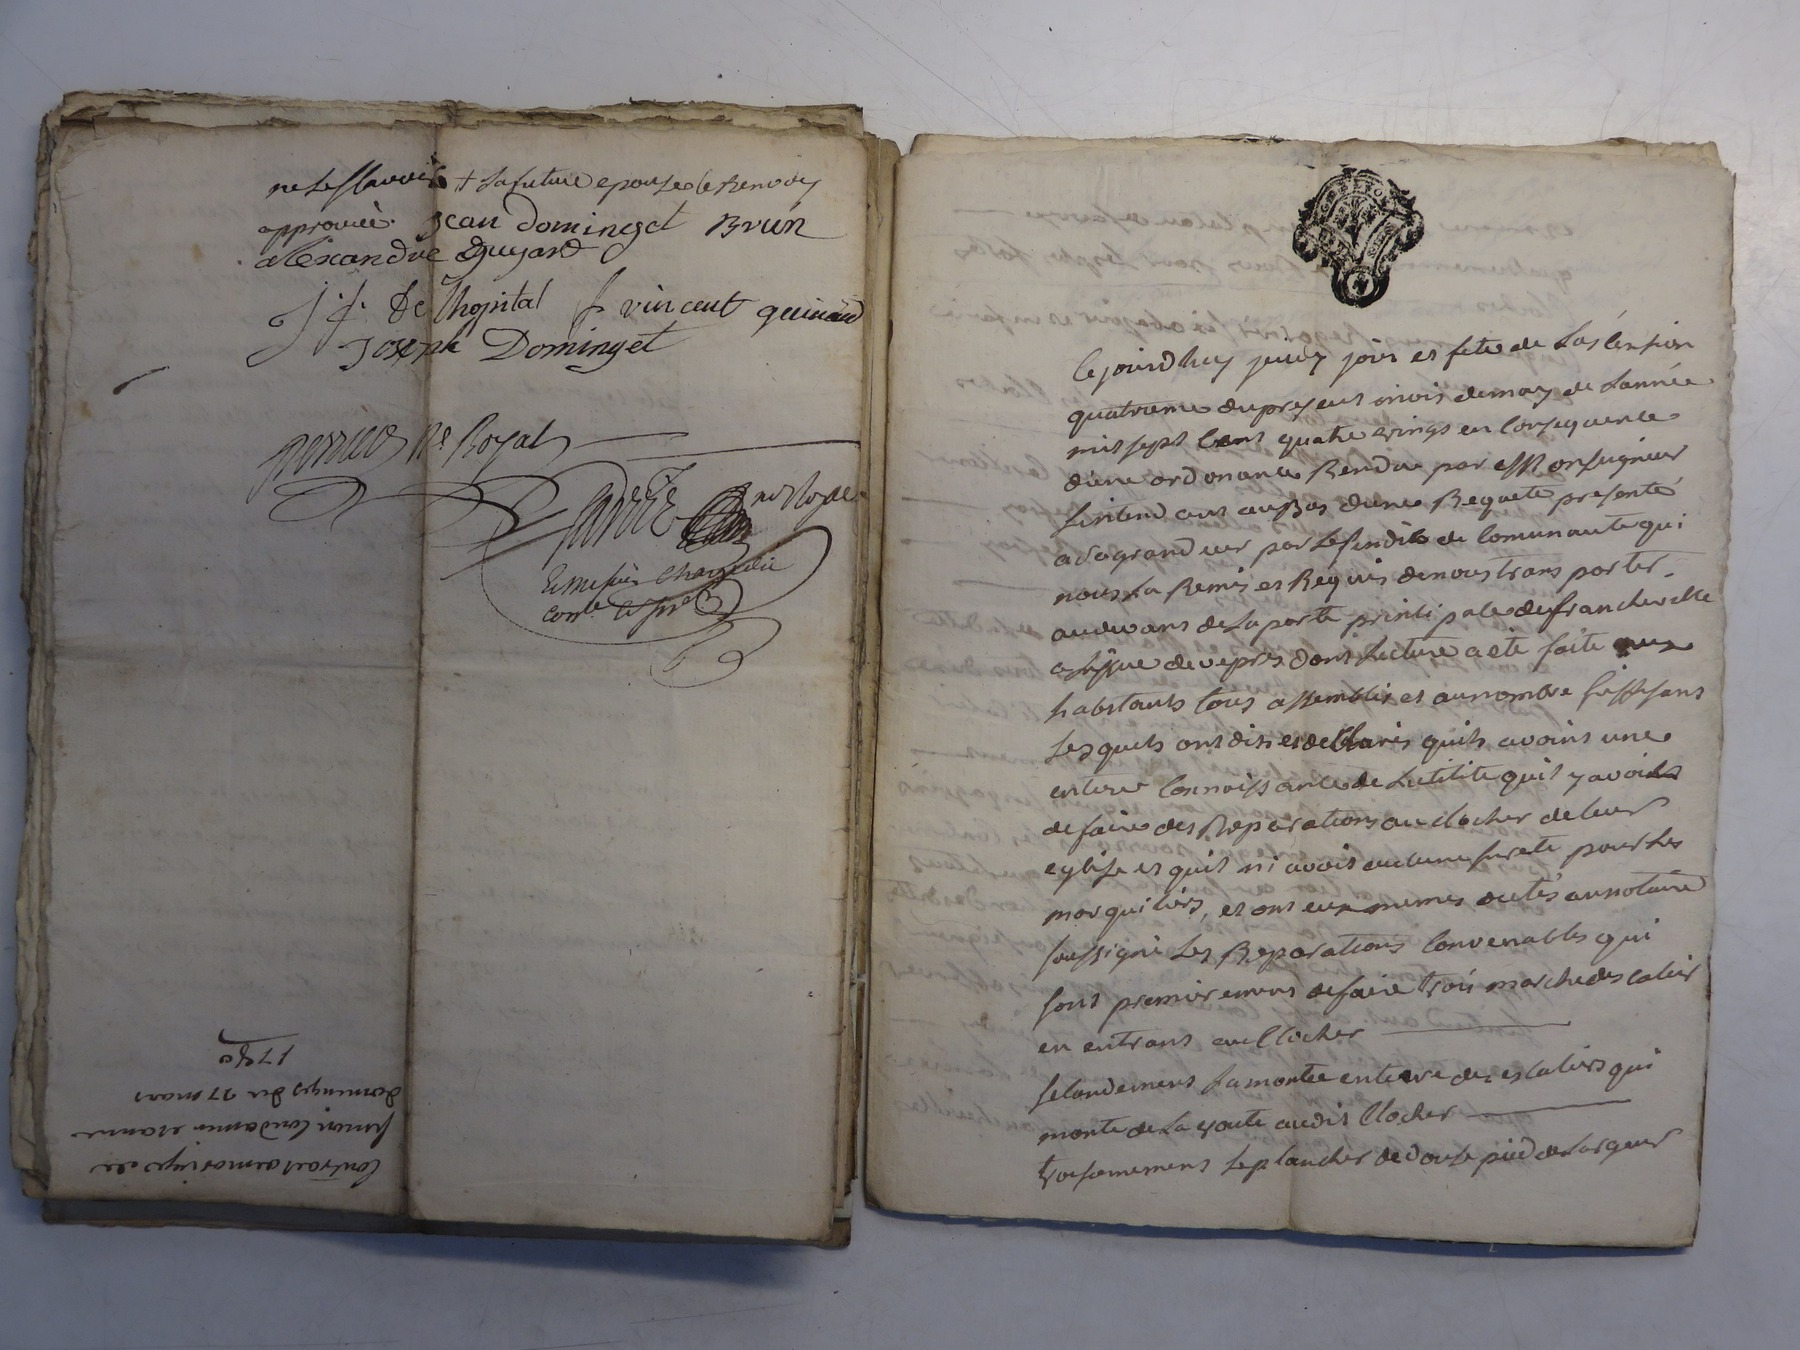 ne le sçavoir + la future epouse le Renvoy
approuvé. Jean Dominget Brun
alexandre Guyard
J. f. De Lhopital f vincent guinand
Joseph Dominget
Perrier Ne Royal
no Royal
1780
dominget du 27 mars
contrat de mariage de
Cejourdhuy jeudy jour et fete de Lascension
quatrieme du present mois de may de Lannée
mil sept Cent quatre vingt en Consequence
dune ordonance Rendue par Monseigneur
Lintendant au Bas dune Requete presenté
a sa grandeur par Le sindic de Comunaute qui
nous La Remis et Requis de nous transporter
audevant de La porte principale de francheville
a Lissue de vepres dont Lecture a eté faite aux
habitants tous assemblés et au nombre suffisant
Lesquels ont dit et declarés quils avoint une
entiere Connoissance de Lutilite quil y avoit
de faire des Reparations au clocher de leur
eglise et quil ni avoit aucune sureté pour Les
marguiliers, et ont eux memes dictés au notaire
soussigné Les Reparations Convenables qui
sont premierement de faire trois marche descalier
en entrant au Clocher
secondement La montée entiere des escaliers qui
monte de La voute audit Clocher
troisiemement Le plancher de douze pied de Largeur